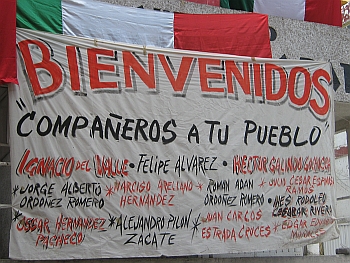 BIENVENIDOS
"COMPAÑEROS A TU PUEBLO"
IGNACIO DEL VALLE • FELIPE ALVAREZ • HECTOR GALINDO
*JORGE ALBERTO ORDOÑEZ ROMERO
*NARCISO ARELLANO HERNÁNDEZ
*ROMAN ADAN ORDOÑEZ ROMERO
*JULIO CESAR ESPINOSA RAMOS
*OSCAR HERNANDEZ PACHECO
*ALEJANDRO PILON ZACATE
*JUAN CARLOS ESTRADA CRUCES
*INES RODOLFO RIVERA
*EDGAR